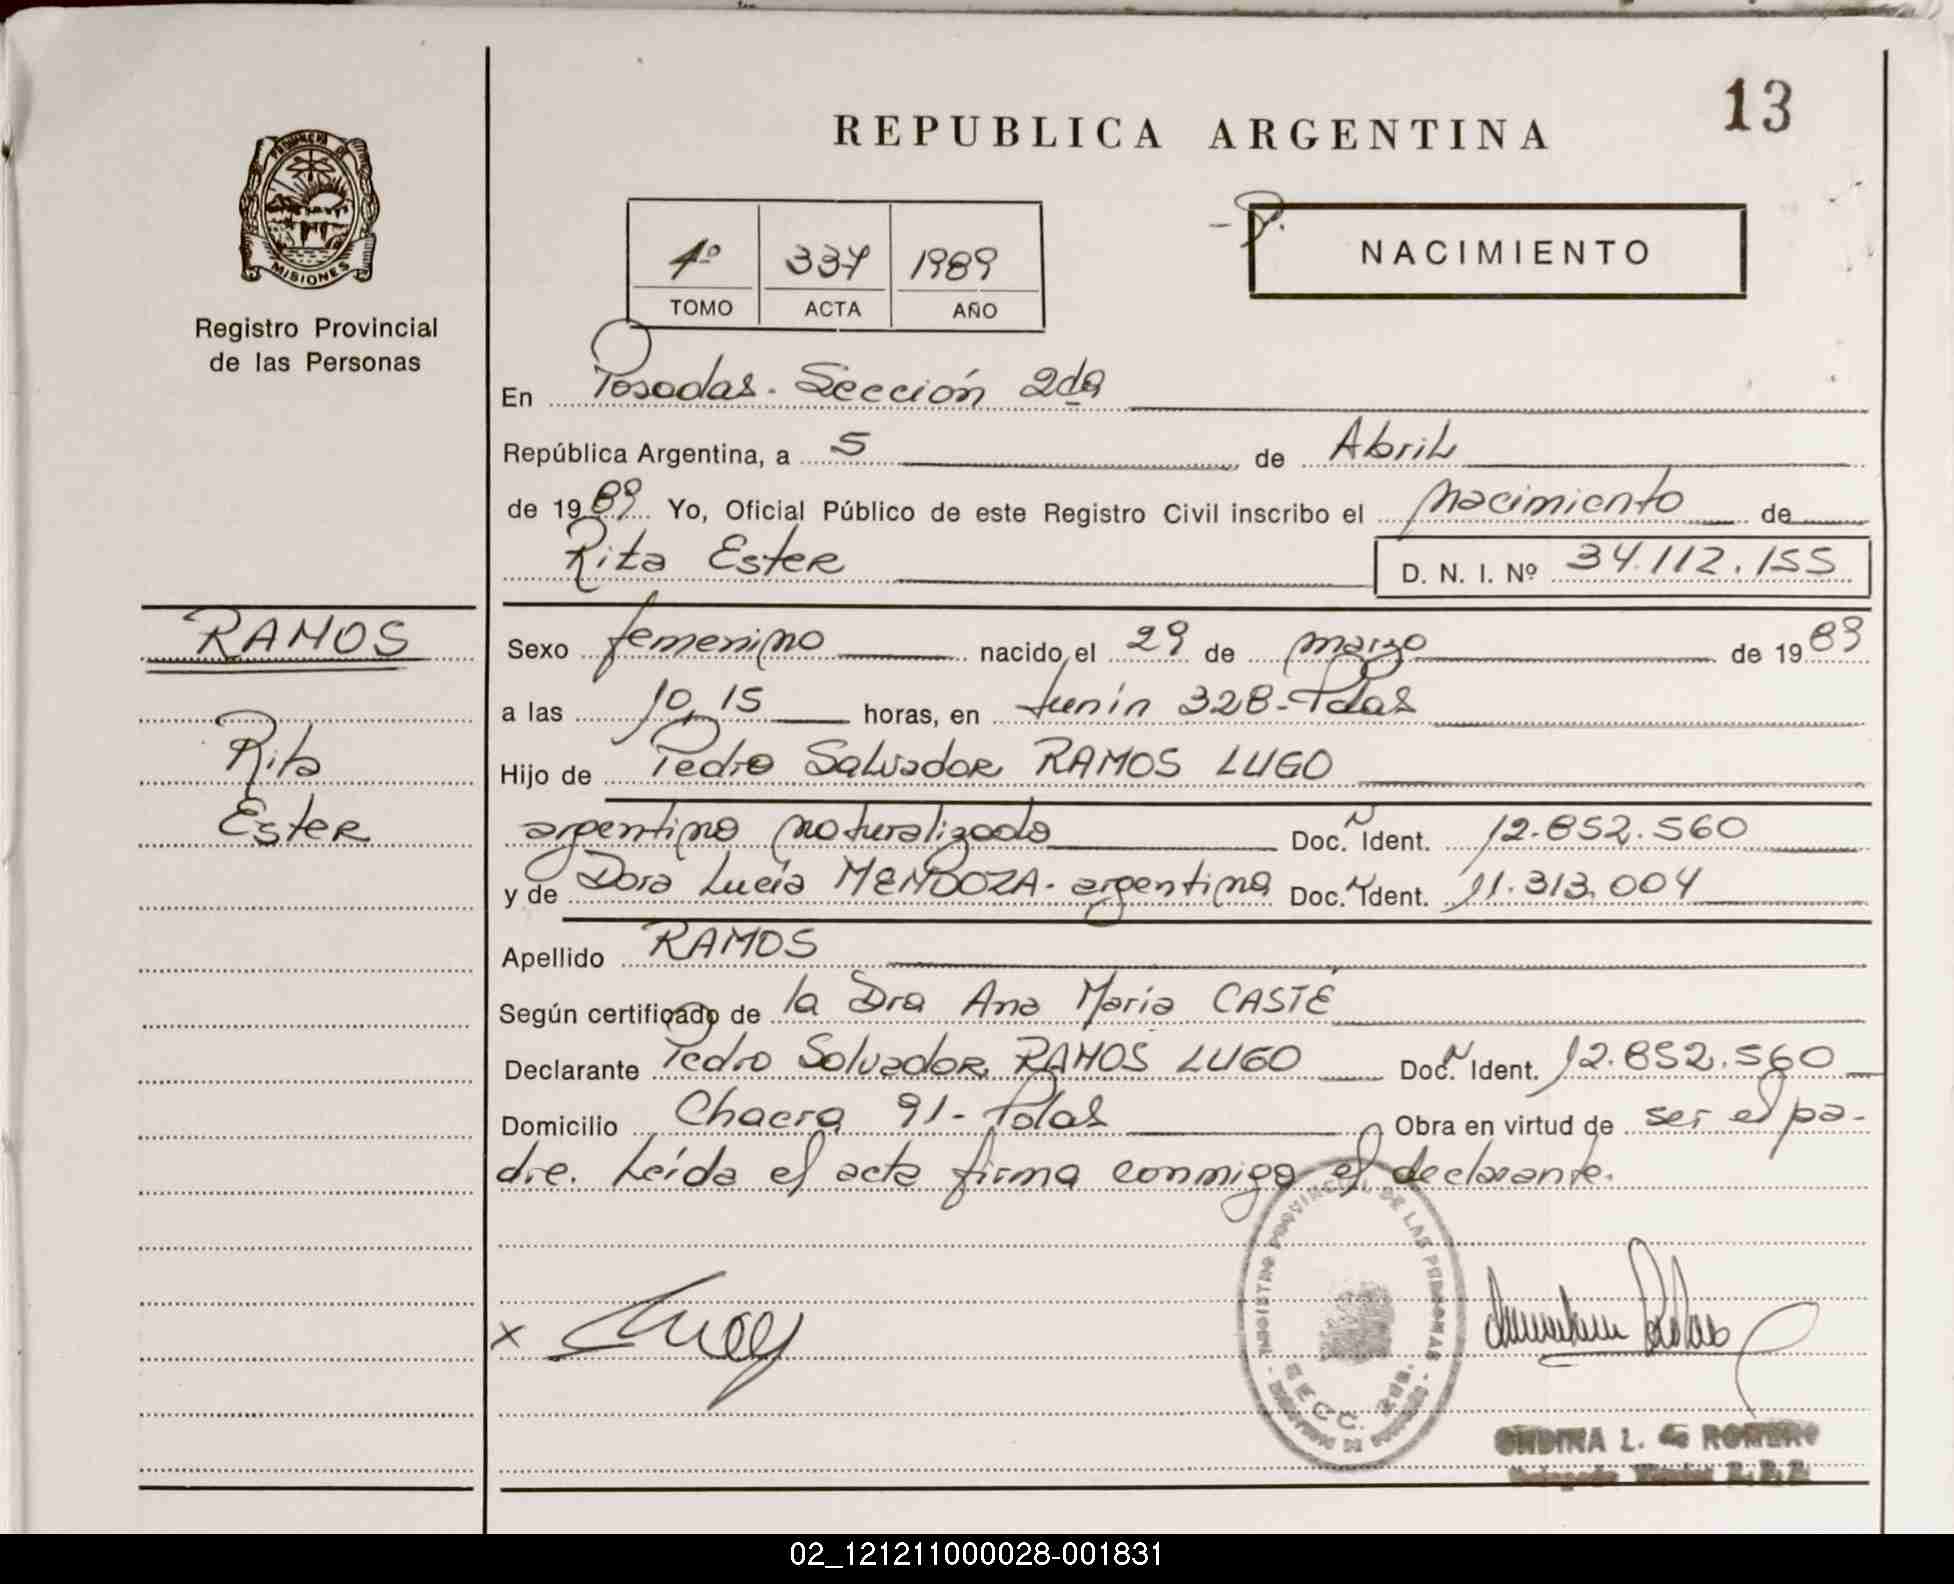 13
REPUBLICA ARGENTINA
PROVINCIA DE
MISIONES
Registro Provincial
de las Personas
1º 337 1989
TOMO ACTA AÑO
NACIMIENTO
En Posadas. Sección 2da
República Argentina, a 5 de Abril
de 1989 Yo, Oficial Público de este Registro Civil inscribo el nacimiento de
Rita Ester D. N. I. Nº 34.112.155
RAMOS
Rita
Ester
Sexo femenino nacido el 29 de marzo de 1989
a las 10,15 horas, en Junín 328-Pdas
Hijo de Pedro Salvador RAMOS LUGO
argentino naturalizado Doc. N Ident. 12.852.560
y de Dora Lucía MENDOZA- argentina Doc. N Ident. 11.313.004
Apellido RAMOS
Según certificado de la Dra Ana María CASTÉ
Declarante Pedro Salvador RAMOS LUGO Doc. N Ident. 12.852.560
Domicilio Chacra 91- Pdas Obra en virtud de ser el pa-
dre. Leída el acta firma conmigo el declarante.
REGISTRO PROVINCIAL DE LAS PERSONAS
SECC. 2da.
X
ONDINA L. de ROMERO
02_121211000028-001831